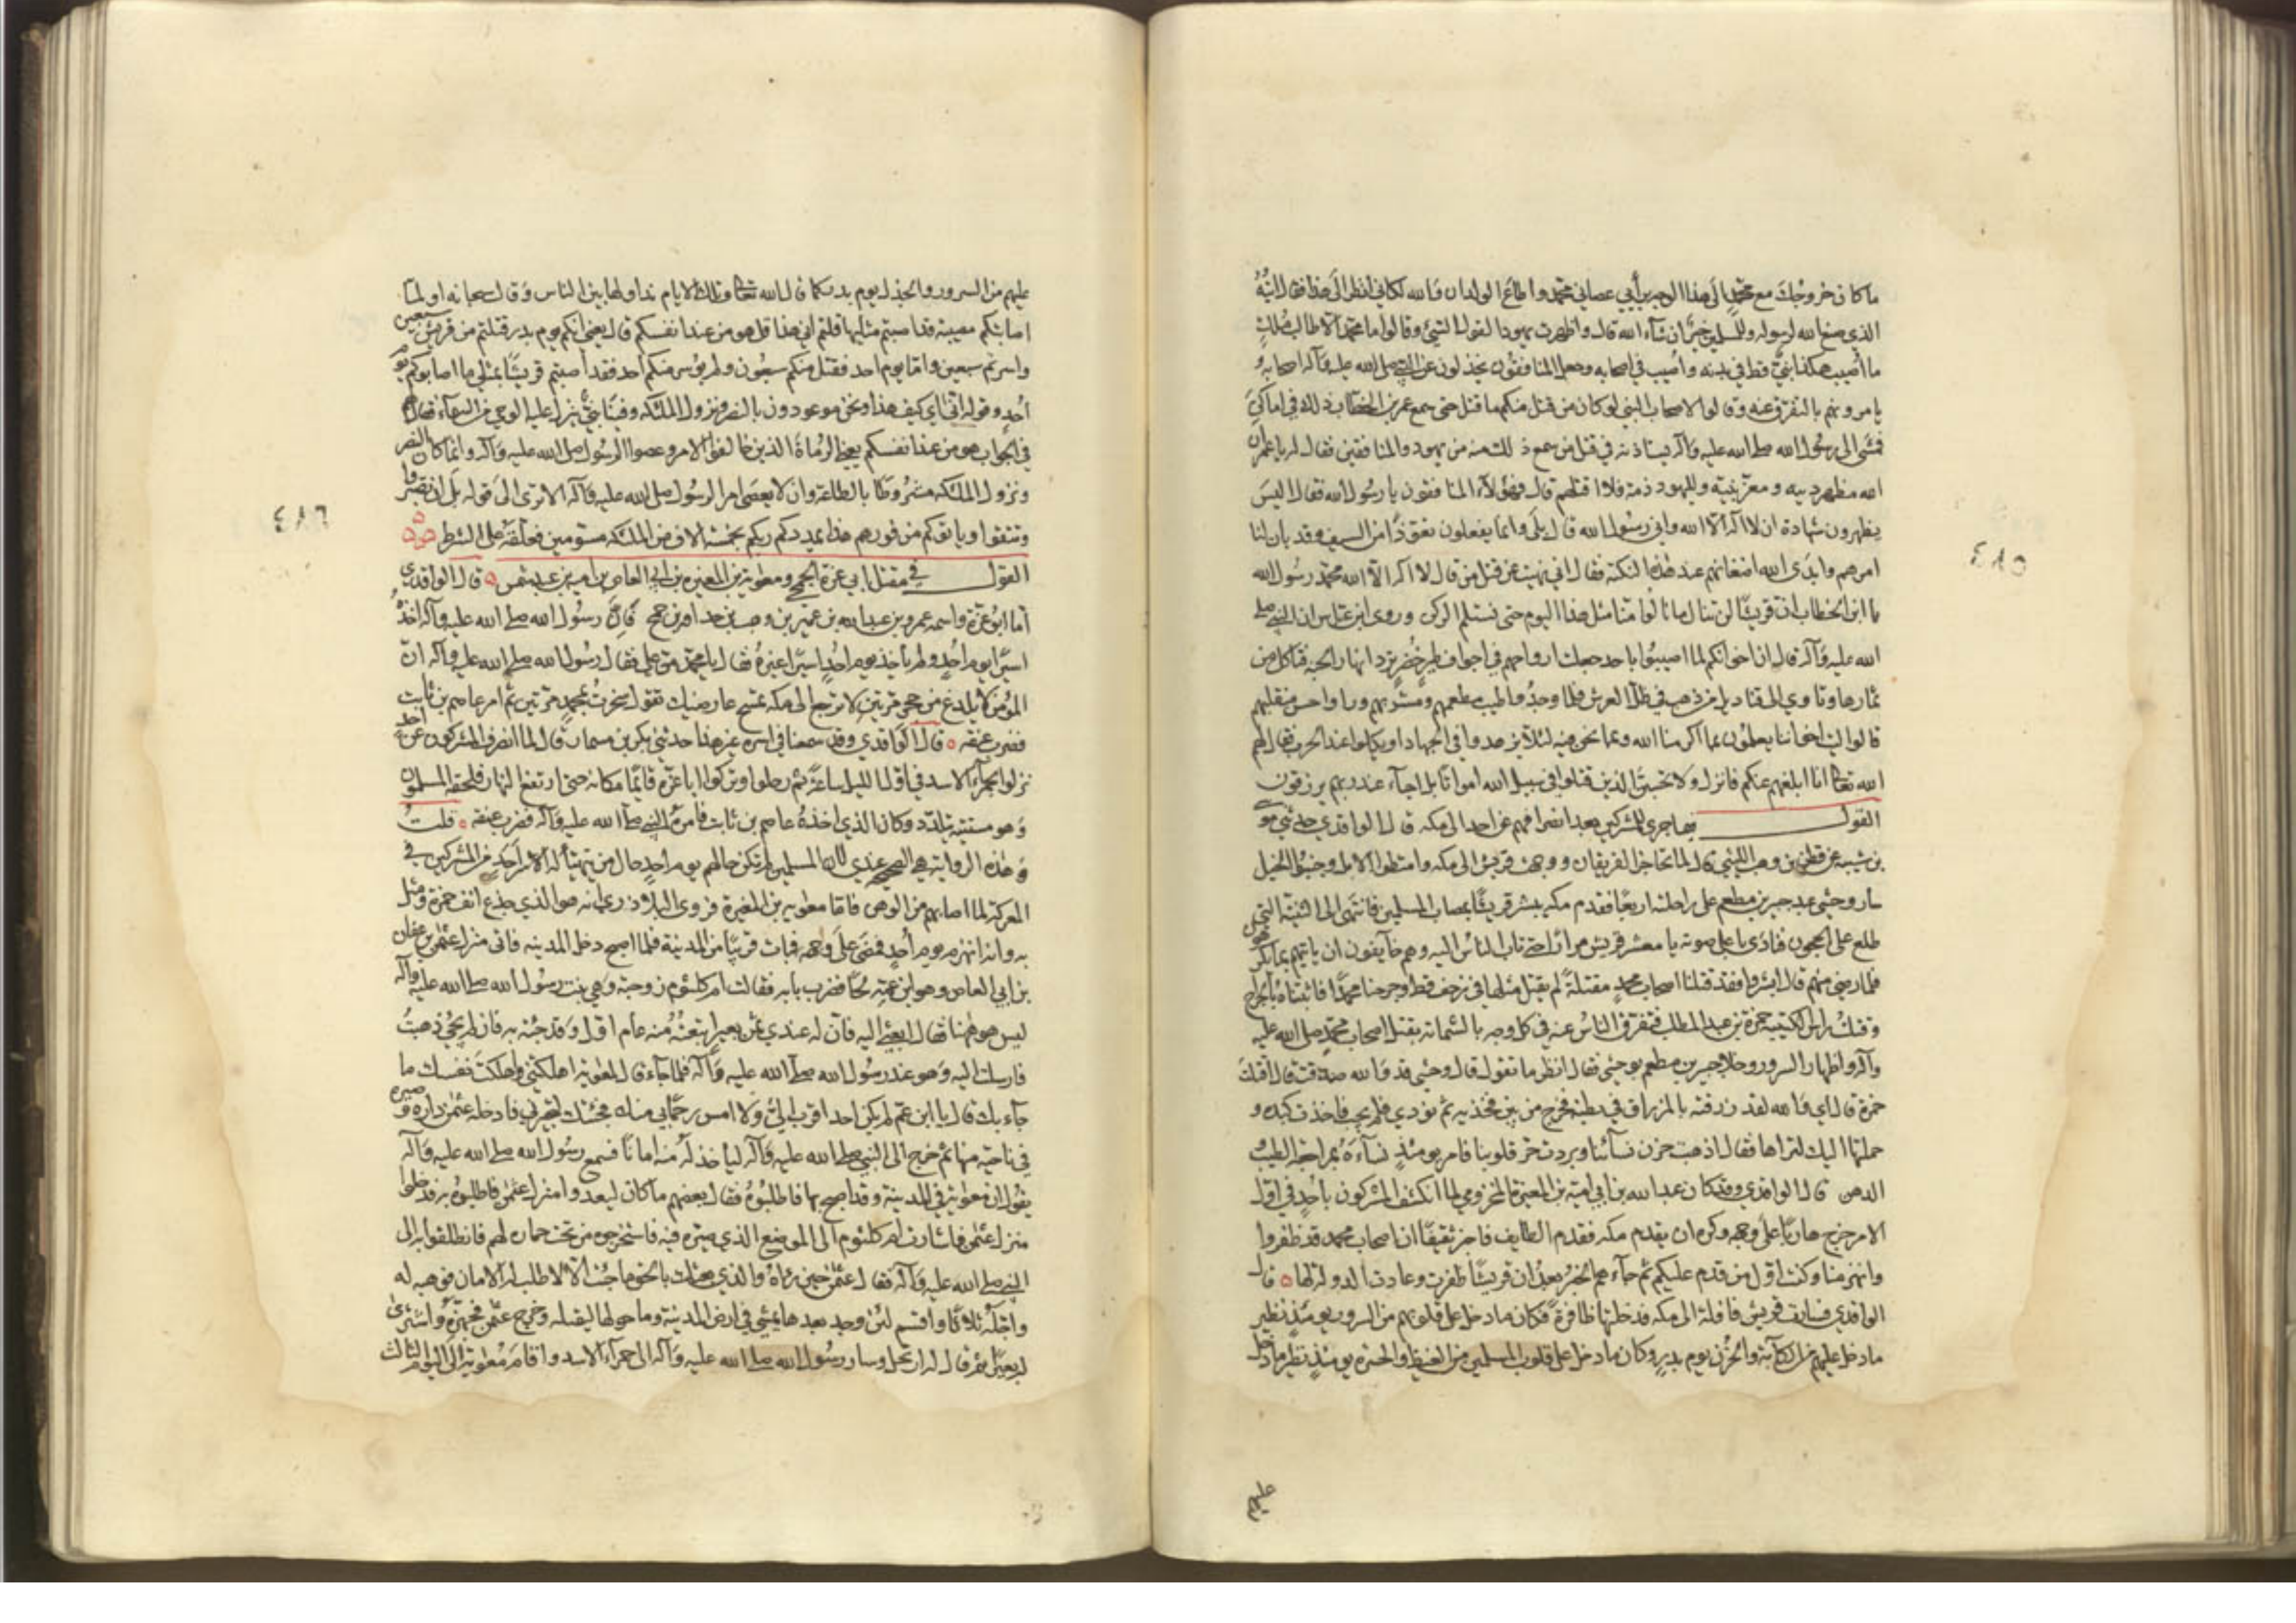 ما كان خروجك مع محمد الى هذا الوجه برأيي عصاني محمد واطاع الولدان والله لكاني انظر الى هذا فقال ابنه
الذي صنع الله لرسوله وللمسلمين خير ان شآء الله قال واظهرت يهود القول السيئ وقالوا ما محمد الا طالب ملك
ما اصيب هكذا نبي قط في بدنه واصيب في اصحابه وجعل المنافقون يخذلون عن النبي صلى الله عليه وآله اصحابه و
يامرونهم بالتفرق عنه وقالوا لاصحاب النبي لو كان من قتل منكم ما قتل حتى سمع عمر بن الخطاب ذلك في اماكن
فمشى الى رسول الله صلى الله عليه وآله يستاذنه في قتل من سمع ذلك منه من يهود والمنافقين فقال له يا عمر ان
الله مظهر دينه ومعز نبيه ولليهود ذمة فلا اقتلهم قال فهؤلآء المنافقون يا رسول الله فقال اليس
يظهرون شهادة ان لا اله الا الله واني رسول الله قال بلى وانما يفعلون تعوذا من السيف وقد بان لنا
امرهم وابدى الله اضغانهم عند هذه النكبة فقال اني نهيت عن قتل من قال لا اله الا الله محمد رسول الله
يا ابن الخطاب ان قريشا لن ينالوا منا مثل هذا اليوم حتى نستلم الركن وروى ابن عباس ان النبي صلى
الله عليه وآله قال ان اخوانكم لما اصيبوا باحد جعلت ارواحهم في اجواف طير خضر ترد انهار الجنة فتاكل من
ثمارها وتاوي الى قناديل من ذهب في ظل العرش فلما وجدوا طيب مطعمهم ومشربهم وراوا حسن منقلبهم
قالوا ليت اخواننا يعلمون بما اكرمنا الله وبما نحن فيه لئلا يزهدوا في الجهاد او يكلوا عند الحرب فقال لهم
الله تعالى انا ابلغهم عنكم فانزل ولا تحسبن الذين قتلوا في سبيل الله امواتا بل احيآء عند ربهم يرزقون
القول فيما جرى للمشركين بعد انصرافهم عن احد الى مكه قال الواقدي حدثني مو
بن شيبه عن قطن بن وهب الليثي قال لما تحاجز الفريقان ووجهت قريش الى مكه وامتطوا الابل وجنبوا الخيل
سار وحشي عبد جبير بن مطعم على راحلته اربعا فقدم مكه يبشر قريشا بمصاب المسلمين فانتهى الى الثنية التي
تطلع على الحجون فنادى باعلى صوته يا معشر قريش مرارا حتى ثاب الناس اليه وهم خآيفون ان ياتيهم بما يكرهون
فلما رضي منهم قال ابشروا فقد قتلنا اصحاب محمد مقتلة لم يقتل مثلها في زحف قط وجرحنا محمدا فاثبتناه بالجراح
وقتلت راس الكتيبه حمزة بن عبد المطلب فتفرق الناس عنه في كل وجه بالشماتة بقتل اصحاب محمد صلى الله عليه
وآله واظهار السرور وخلا جبير بن مطعم بوحشي فقال انظر ما تقول قال وحشي قد والله صدقت قال اقتلت
حمزة قال اي والله لقد زرقته بالمزراق في بطنه فخرج من بين فخذيه ثم نودي فلم يجب فاخذت كبده و
حملتها اليك لتراها فقال اذهبت حزن نسآئنا وبردت حر قلوبنا فامر يومئذ نسآءه بمراجعة الطيب و
الدهن قال الواقدي وقد كان عبد الله بن ابي اميه بن المغيرة المخزومي لما انكشف المشركون باحد في اول
الامر خرج هاربا على وجهه وكره ان يقدم مكه فقدم الطايف فاخبر ثقيفا ان اصحاب محمد قد ظفروا
وانهزمنا وكنت اول من قدم عليكم ثم جآءهم الخبر بعد ان قريشا ظفرت وعادت الدولة لها قال
الواقدي فسارت قريش قافلة الى مكه فدخلتها ظافرة فكان ما دخل على قلوبهم من السرور يومئذ نظير
ما دخل عليهم من الكآبة والحزن يوم بدر وكان ما دخل على قلوب المسلمين من الغيظ والحسرة يومئذ نظير ما دخل
عليهم
٤٨٥
عليهم من السرور والجذل يوم بدر كما قال الله تعالى وتلك الايام نداولها بين الناس وقال سبحانه اولما
اصابتكم مصيبة قد اصبتم مثليها قلتم انى هذا قل هو من عند انفسكم قال يعني انكم يوم بدر قتلتم من قريش سبعين
واسرتم سبعين واما يوم احد فقتل منكم سبعون ولم يؤسر منكم احد فقد اصبتم قريشا بمثلي ما اصابوكم يوم
احد وقوله انى اي كيف هذا ونحن موعودون بالنصر ونزول الملئكه وفينا نبي ينزل عليه الوحي من السمآء فقال لهم
في الجواب هو من عند انفسكم يعني الرماة الذين خالفوا الامر وعصوا الرسول صلى الله عليه وآله وانما كان النصر
ونزول الملئكه مشروطا بالطاعة وان لا يعصى امر الرسول صلى الله عليه وآله الا ترى الى قوله بلى ان تصبروا
وتتقوا وياتوكم من فورهم هذا يمددكم ربكم بخمسة الاف من الملئكه مسومين فعلقه على الشرط
القول في مقتل ابي عزة الجمحي ومعوية بن المغيره بن ابي العاص بن اميه بن عبد شمس قال الواقدي
اما ابو عزة واسمه عمرو بن عبد الله بن عمير بن وهب بن حذافه بن جمح فان رسول الله صلى الله عليه وآله اخذه
اسيرا يوم احد ولم ياخذ يوم احد اسيرا غيره فقال يا محمد من علي فقال رسول الله صلى الله عليه وآله ان
المؤمن لا يلدغ من جحر مرتين لا ترجع الى مكه تمسح عارضيك تقول سخرت بمحمد مرتين ثم امر عاصم بن ثابت
فضرب عنقه قال الواقدي وقد سمعنا في اسره غير هذا حدثني بكير بن مسمار قال لما انصرف المشركون عن احد
نزلوا بحمرآء الاسد في اول الليل ساعة ثم رحلوا وتركوا ابا عزة نائما مكانه حتى ارتفع النهار فلحقه المسلمون
وهو مستنبه يتلدد وكان الذي اخذه عاصم بن ثابت فامره النبي صلى الله عليه وآله فضرب عنقه قلت
وهذه الرواية هي الصحيحه عندي لان المسلمين لم تكن حالهم يوم احد حال من يتهيأ له اسر احد من المشركين في
المعركة لما اصابهم من الوهن فاما معويه بن المغيرة فروى البلاذري انه هو الذي جدع انف حمزة ومثل
به وانه انهزم يوم احد فمضى على وجهه فبات قريبا من المدينة فلما اصبح دخل المدينه فاتى منزل عثمن بن عفان
بن ابي العاص وهو ابن عمه لحا فضرب بابه فقالت ام كلثوم زوجته وهي بنت رسول الله صلى الله عليه وآله
ليس هو هاهنا فقال ابعثي اليه فان له عندي ثمن بعير ابتعته منه عام اول وقد جئته به فان لم يجئ ذهبت
فارسلت اليه وهو عند رسول الله صلى الله عليه وآله فلما جآء قال لمعويه اهلكتني واهلكت نفسك ما
جآء بك قال يا ابن عم لم يكن احد اقرب الي ولا امس رحما بي منك فجئتك لتجيرني فادخله عثمن داره وصيره
في ناحية منها ثم خرج الى النبي صلى الله عليه وآله لياخذ له منه امانا فسمع رسول الله صلى الله عليه وآله
يقول ان معويه في المدينة وقد اصبح بها فاطلبوه فقال بعضهم ما كان ليعدو منزل عثمن فاطلبوه به فدخلوا
منزل عثمن فاشارت ام كلثوم الى الموضع الذي صيره فيه فاستخرجوه من تحت حماره لهم فانطلقوا به الى
النبي صلى الله عليه وآله فقال عثمن حين رآه والذي بعثك بالحق ما جئت الا لاطلب له الامان فهبه لي فوهبه له
واجله ثلاثا واقسم لئن وجد بعدها يمشي في ارض المدينة وما حولها ليقتلنه وخرج عثمن فجهزه واشترى
له بعيرا ثم قال له ارتحل وسار رسول الله صلى الله عليه وآله الى حمرآء الاسد واقام معوية الى اليوم الثالث
٤٨٦